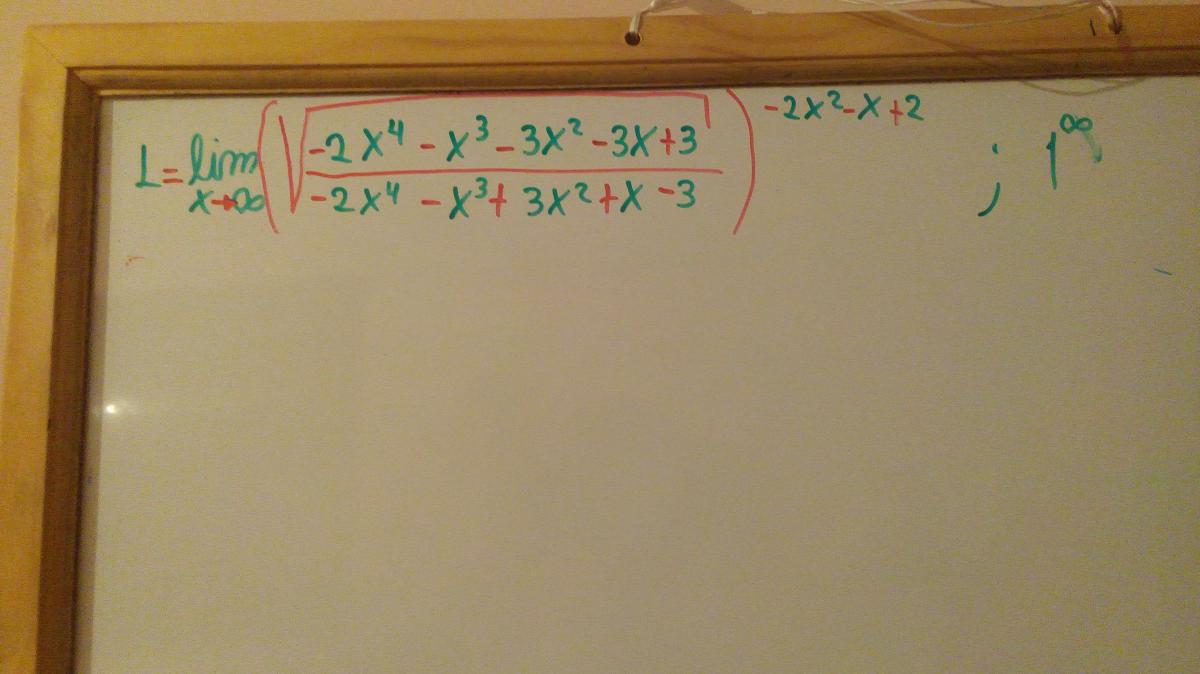 L = lim x→∞ (√((-2x⁴ - x³ - 3x² - 3x + 3) / (-2x⁴ - x³ + 3x² + x - 3)))^(-2x² - x + 2) ; 1^∞